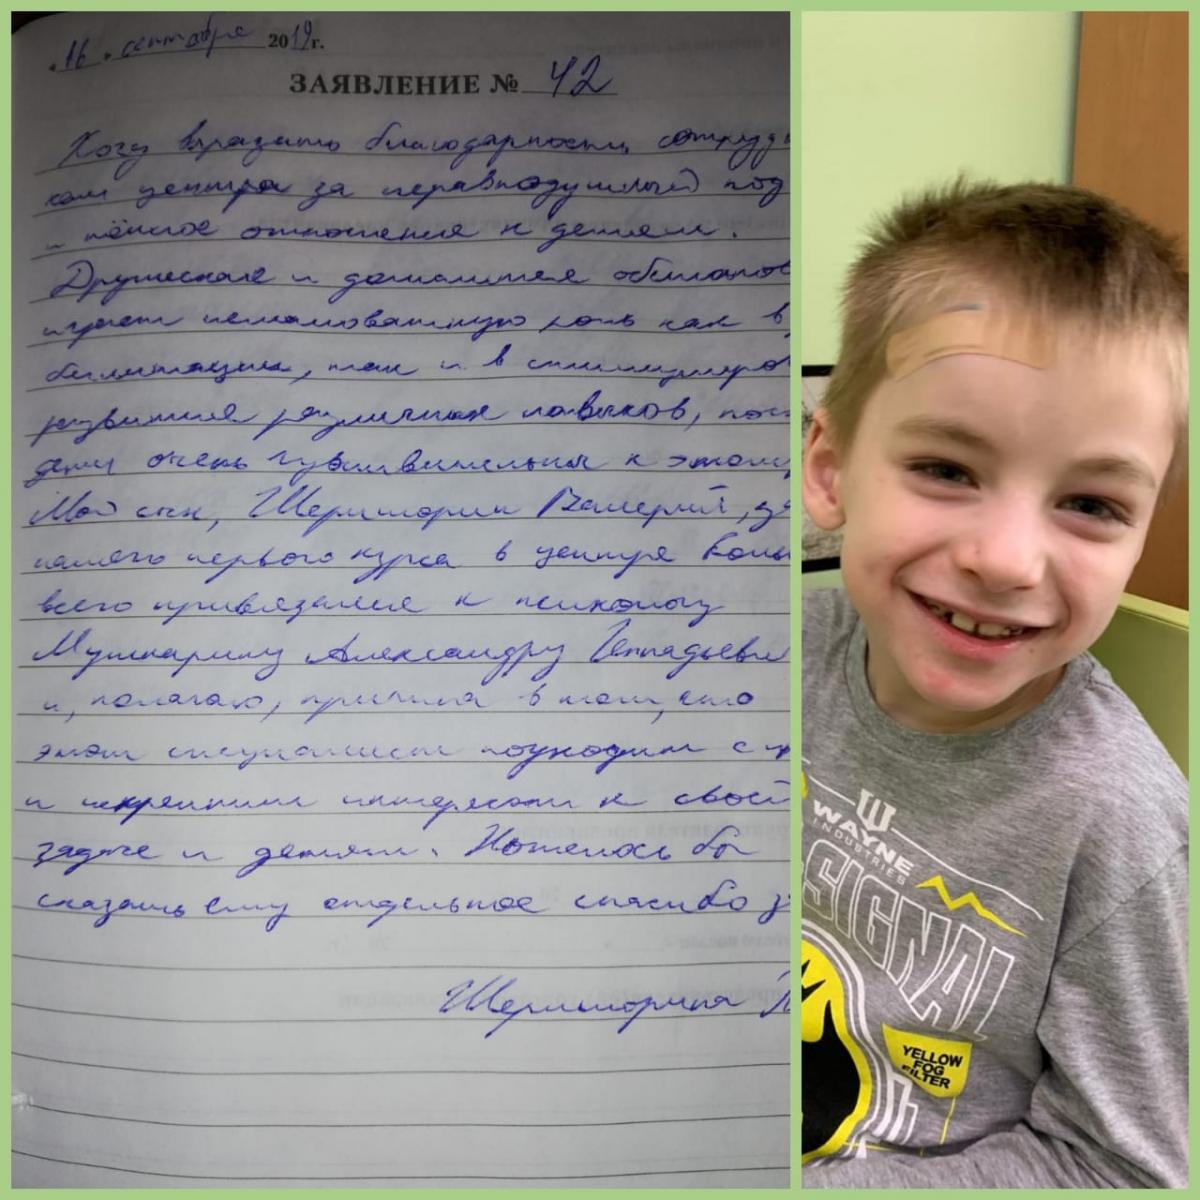 „16" сентября 2019г.
ЗАЯВЛЕНИЕ № 42
Хочу выразить благодарность сотрудн
кам центра за неравнодушный под
и тёплое отношение к детям.
Дружеская и домашняя обстанов
играет немаловажную роль как в
билитации, так и в стимулиро
развития различных навыков, пос
дети очень чувствительны к этому
Мой сын, Валерий,
нашего первого курса в центре боль
всего привязался к психологу
Александру Геннадьеви
и, полагаю, причина в том, что
этот специалист подходит с
и искренним интересом к своей
задаче и детям. Хотелось бы
сказать ему отдельное спасибо з
WAYNE
INDUSTRIES
SIGNAL
YELLOW
FOG
FILTER